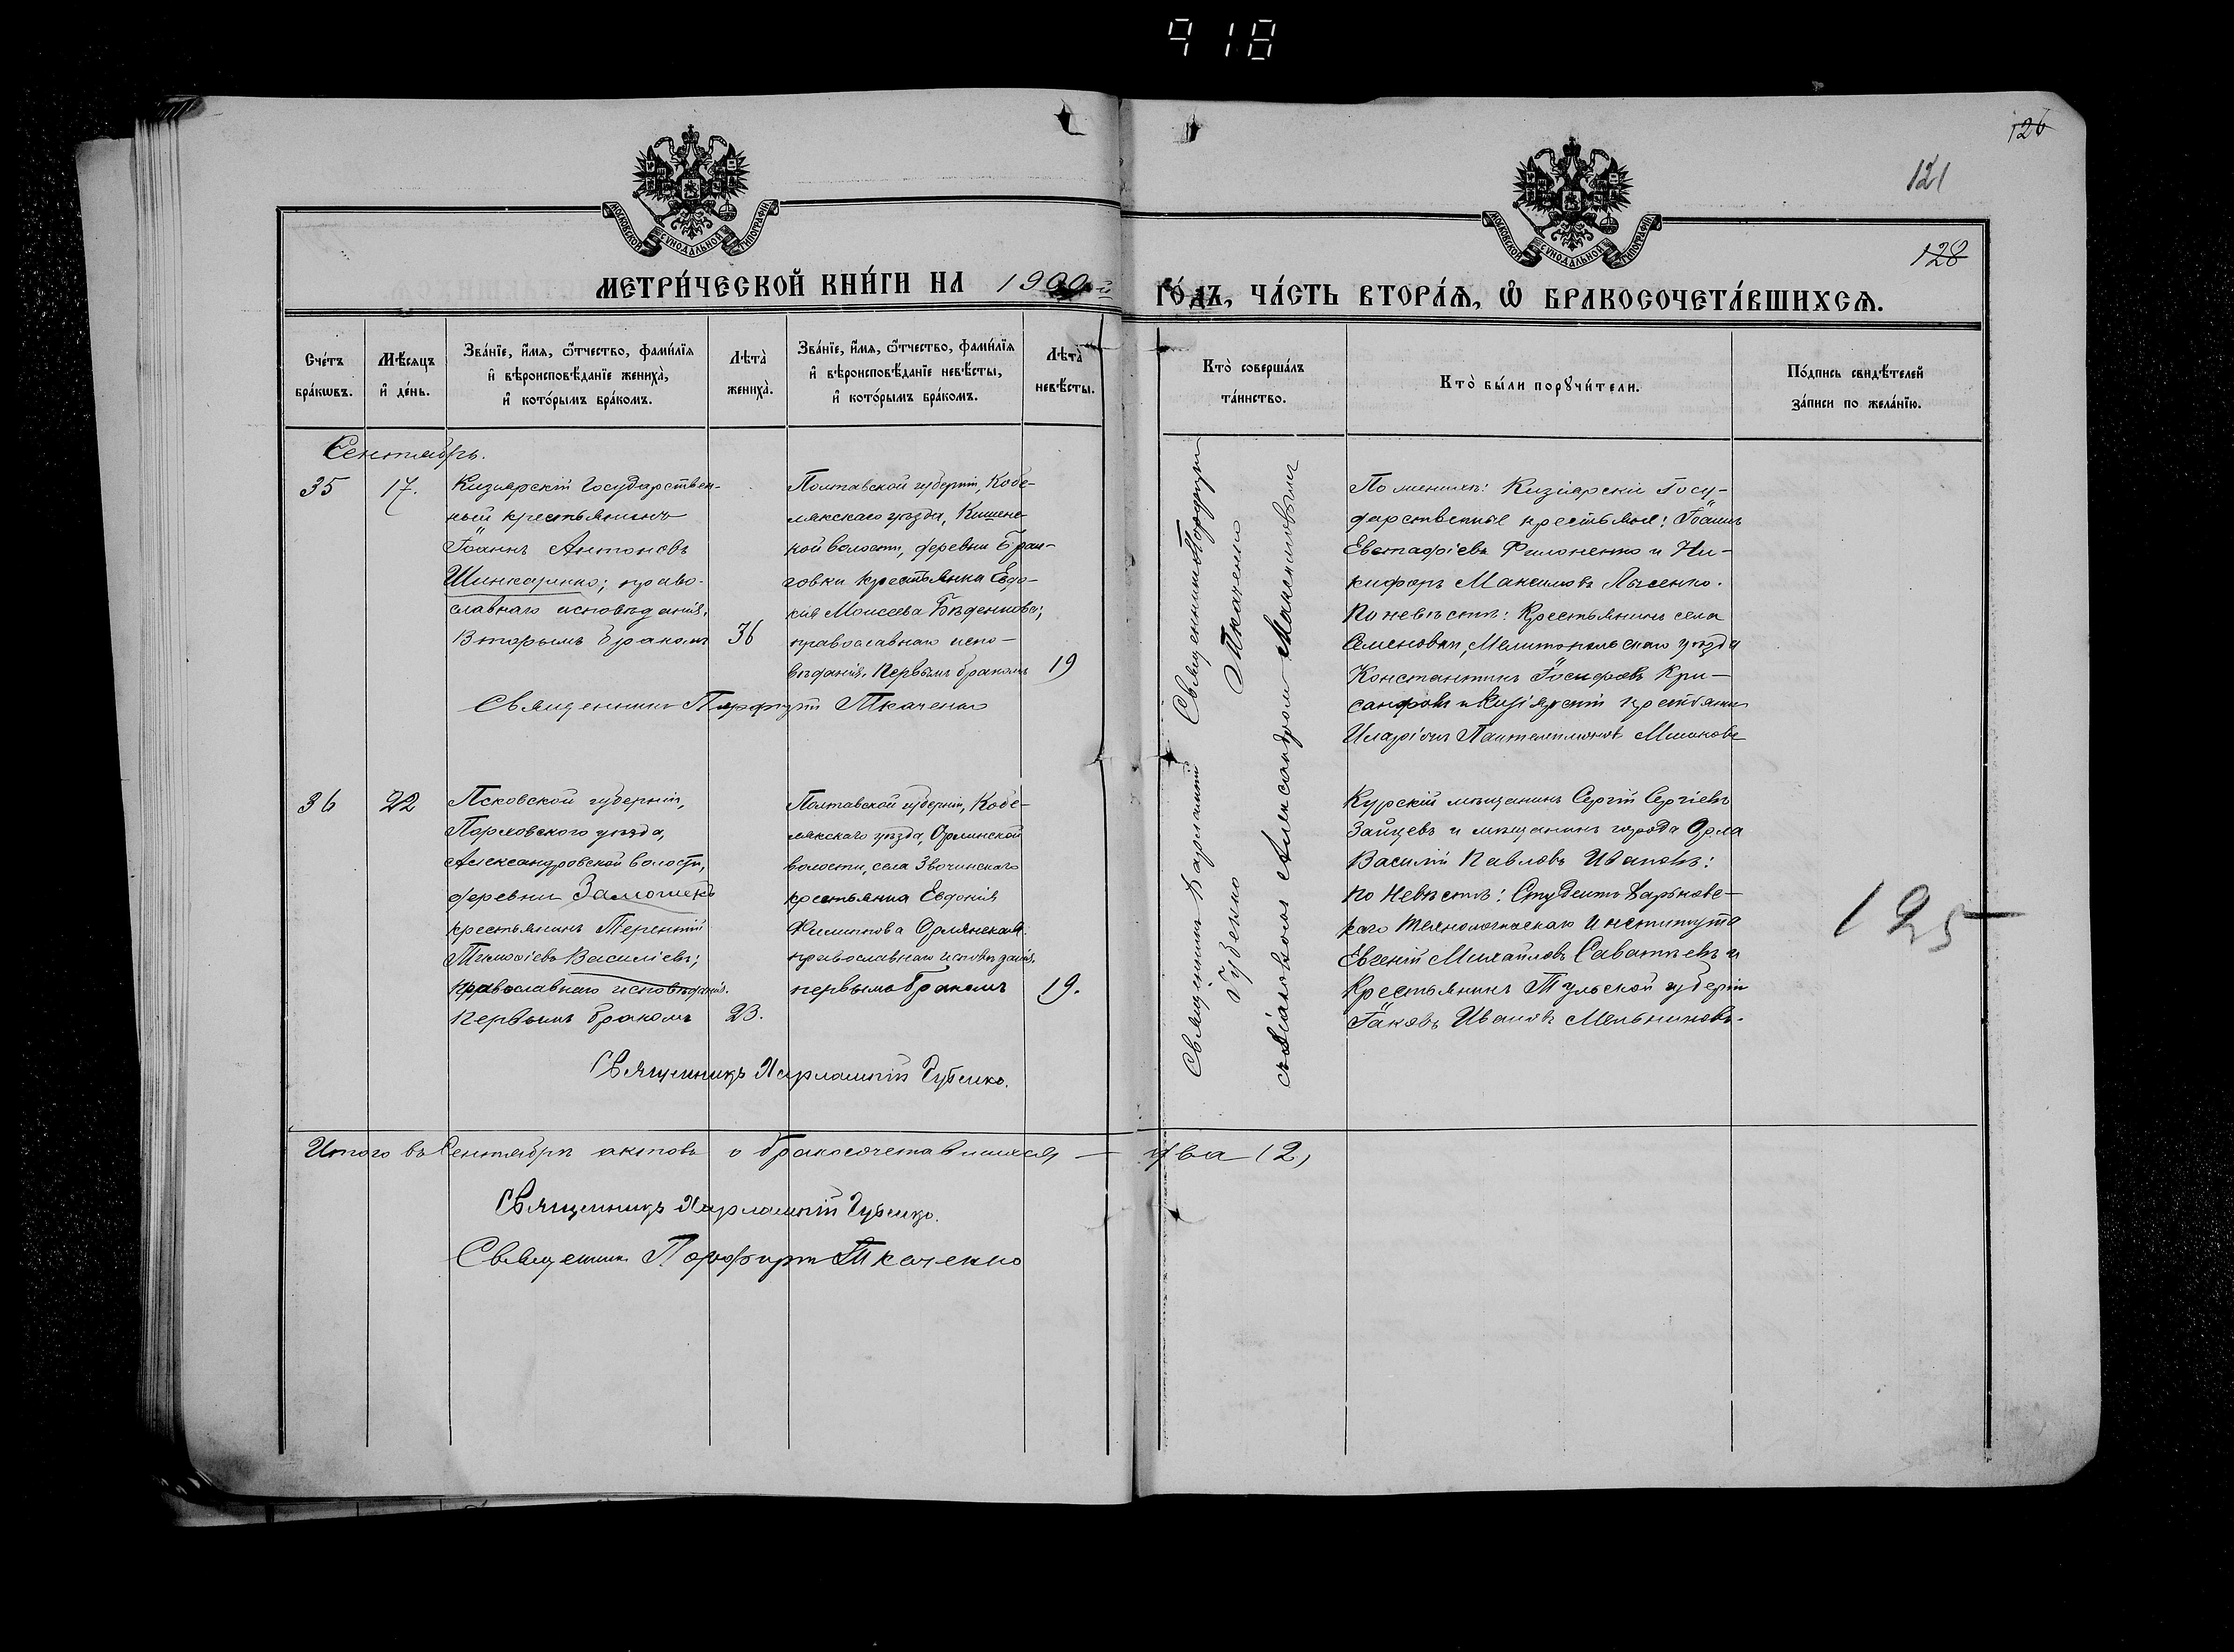 918
126
121
128
МОСКОВСКОЙ СѴНОДАЛЬНОЙ ТИПОГРАФІИ
МОСКОВСКОЙ СѴНОДАЛЬНОЙ ТИПОГРАФІИ
МЕТРИ́ЧЕСКОЙ КНИ́ГИ НА 1900й ГО́ДЪ, ЧА́СТЬ ВТОРА́Ѧ, Ѽ БРАКОСОЧЕТА́ВШИХСѦ.
Сче́тъ
бра́кѡвъ.
Мѣ́сѧцъ
и҆ де́нь.
Зва́нїе, и҆́мѧ, ѻ҆́тчество, фамн́лїѧ
и҆ вѣроисповѣ́данїе жениха̀,
и҆ кото́рымъ бра́комъ.
Лѣта̀
жениха̀.
Зва́нїе, и҆́мѧ, ѻ҆́тчество, фами́лїѧ
и҆ вѣроисповѣ́данїе невѣ́сты,
и҆ кото́рымъ бра́комъ.
Лѣта̀
невѣ́сты.
Кто̀ соверша́лъ
та́инство.
Кто̀ бы́ли порꙋчи́тели.
По́дпись свидѣ́телей
за́писи по жела́нїю.
Сентябрь.
35
17.
Кизіярскій Государствен-
ный крестьянинъ
Іоаннъ Антоновъ
Шинкаренко; право-
славнаго исповѣданія,
Вторымъ бракомъ
36
Полтавской губерніи, Кобе-
лякскаго уѣзда, Кишень-
кой волости, деревни Бран-
говки крестьянка Евдо-
кія Моисеева Бѣденкова;
православнаго испо-
вѣданія. Первымъ бракомъ
19
Священникъ Порфирій Ткаченко
Священникъ Порфирій
Ткаченко
По женихѣ: Кизіярскіе Госу-
дарственные крестьяне: Іоаннъ
Евстафіевъ Филоненко и Ни-
кифоръ Максимовъ Лысенко.
По невѣстѣ: Крестьянинъ села
Семеновки, Мелитопольскаго уѣзда
Константинъ Іосифовъ Кри-
санфовъ и Кизіярскій крестьянинъ
Иларіонъ Пантелеимоновъ
36
22
Псковской губерніи,
Порховского уѣзда,
Александровской волости,
деревни Замошекъ
крестьянинъ Терентій
Тимофіевъ Василіевъ;
православнаго исповѣданія.
Первымъ бракомъ
23.
Полтавской губерніи, Кобе-
лякскаго уѣзда,
волости, села
крестьянка Евдокія
Филиппова
православнаго исповѣданія.
первымъ бракомъ
19.
Священникъ Харлампій Губенко.
Священникъ Харлампій
Губенко
съ діакономъ Александромъ
Курскій мѣщанинъ Сергій Сергіевъ
Зайцевъ и мѣщанинъ города Орла
Василій Павловъ Ивановъ:
По Невѣстѣ: Студентъ Харьковс-
каго Технологическаго Института
Евгеній Михайловъ Саватѣевъ и
Крестьянинъ Тульской губерніи
Іаковъ Ивановъ Мельниковъ.
125
Итого въ Сентябрѣ актовъ о бракосочетавшихся — два (2)
Священникъ Харлампій Губенко.
Священникъ Порфирій Ткаченко